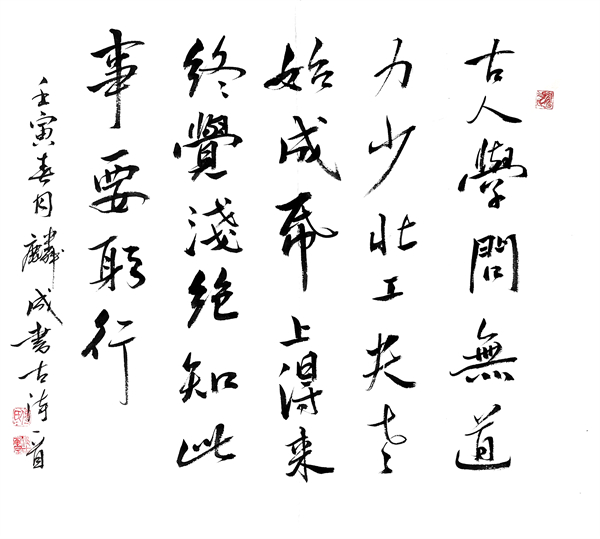 古人學問無道
力少壯工夫老
始成帋上得来
終覺淺絶知此
事要躬行
壬寅春月麟成書古詩一首